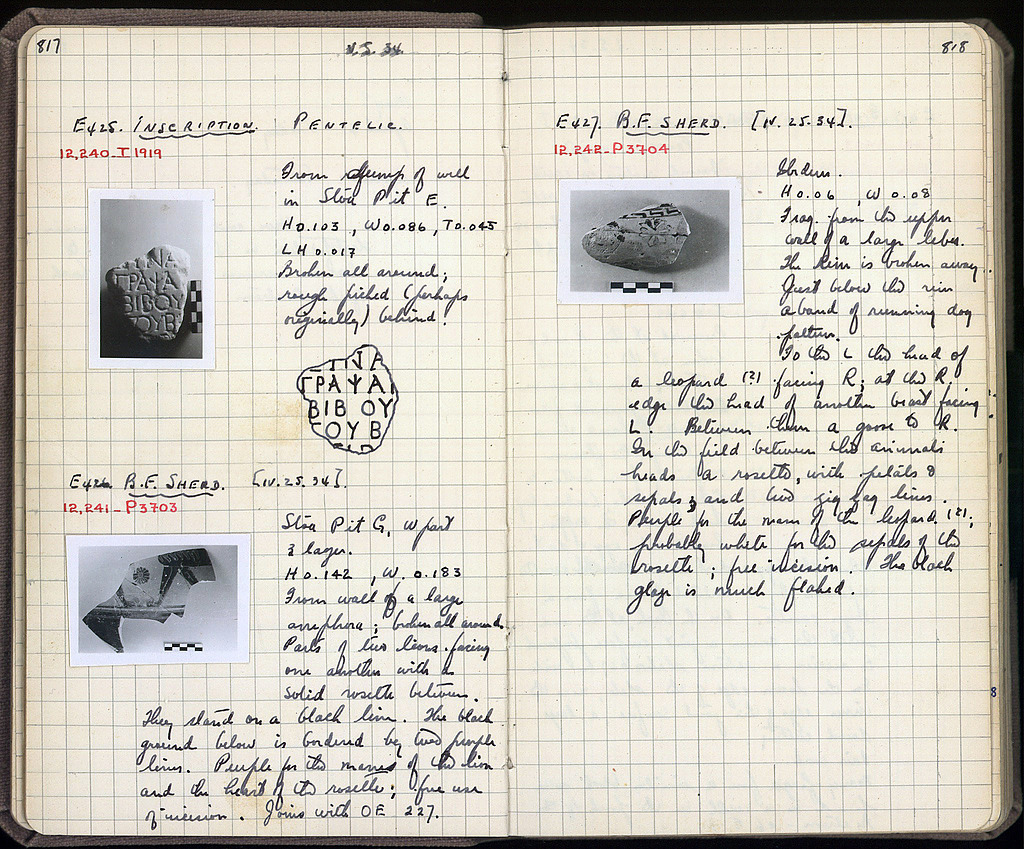 817
V.S. 34
E425. INSCRIPTION. PENTELIC.
12,240-I 1919
From dump of well
in Stoa Pit E.
H 0.103, W 0.086, T 0.045
LH 0.017
Broken all around;
rough picked (perhaps
originally) behind.
ΓΡΑΨΑΙ
ΒΙΒ ΟΥ
ΟΥ Β
E426 B.F. SHERD. [IV.25.34].
12,241-P3703
Stoa Pit G, W part
3 layer.
H 0.142, W. 0.183
From wall of a large
amphora; broken all around.
Parts of two lions facing
one another with a
solid rosette between.
They stand on a black line. The black
ground below is bordered by two purple
lines. Purple for the manes of the lion
and the heart of the rosette; free use
of incision. Joins with OE 227.
818
E427. B.F. SHERD. [IV.25.34].
12,242-P3704
Ibidem.
H 0.06, W 0.08
Frag. from the upper
wall of a large lebes.
The rim is broken away.
Just below the rim
a band of running dog
pattern.
To the L the head of
a leopard (?) facing R; at the R
edge the head of another beast facing
L. Between them a goose to R.
In the field between the animals
heads a rosette, with petals &
sepals, and two zig zag lines.
Purple for the mane of the leopard (?);
probably white for the sepals of the
rosette; free incision. The black
glaze is much flaked.
8